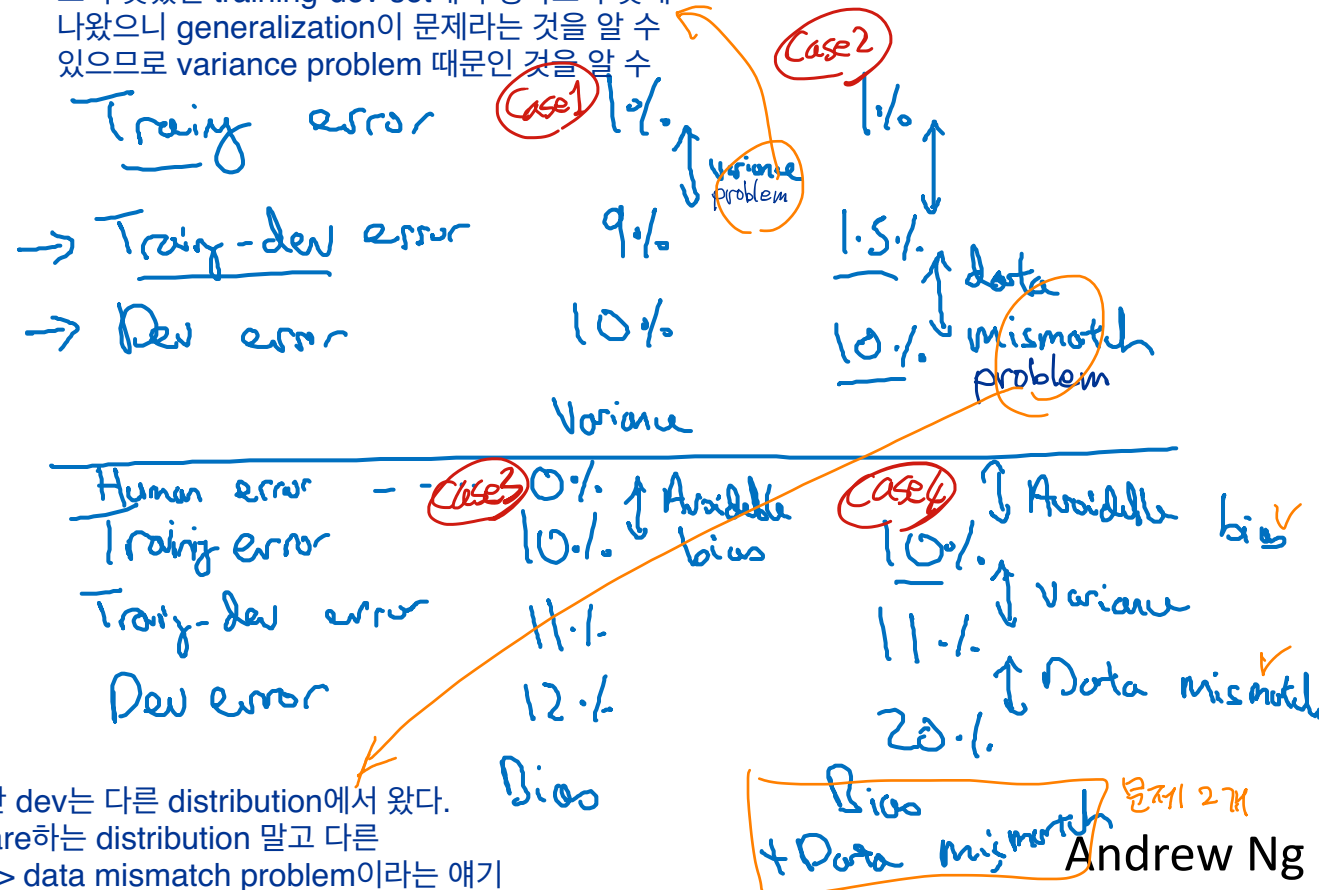 training-dev set
나왔으니 generalization이 문제라는 것을 알 수
있으므로 variance problem 때문인 것을 알 수
Case1 Case2
Training error 1% 1%
variance
problem
→ Training-dev error 9% 1.5%
data
→ Dev error 10% 10% mismatch
problem
Variance
Human error -- Case3 0% Avoidable bias Case4 Avoidable bias
Training error 10% 10%
Variance
Training-dev error 11% 11%
Data mismatch
Dev error 12% 20%
Bias Bias
+ Data mismatch
문제 2개
dev는 다른 distribution에서 왔다.
are하는 distribution 말고 다른
> data mismatch problem이라는 얘기
Andrew Ng